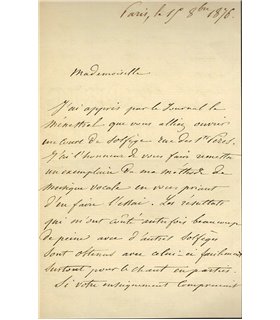 Paris, le 15 8bre 1876.
Mademoiselle
J'ai appris par le Journal le
Ménestrel que vous alliez ouvrir
un cours de Solfège rue des Sts Pères.
J'ai l'honneur de vous faire remettre
un exemplaire de ma méthode de
musique vocale en vous priant
d'en faire l'essai. Les résultats
qui m'ont coûté autrefois beaucoup
de peine avec d'autres Solfèges
sont obtenus avec celui-ci facilement
surtout pour le chant en parties.
Si votre enseignement comprenait